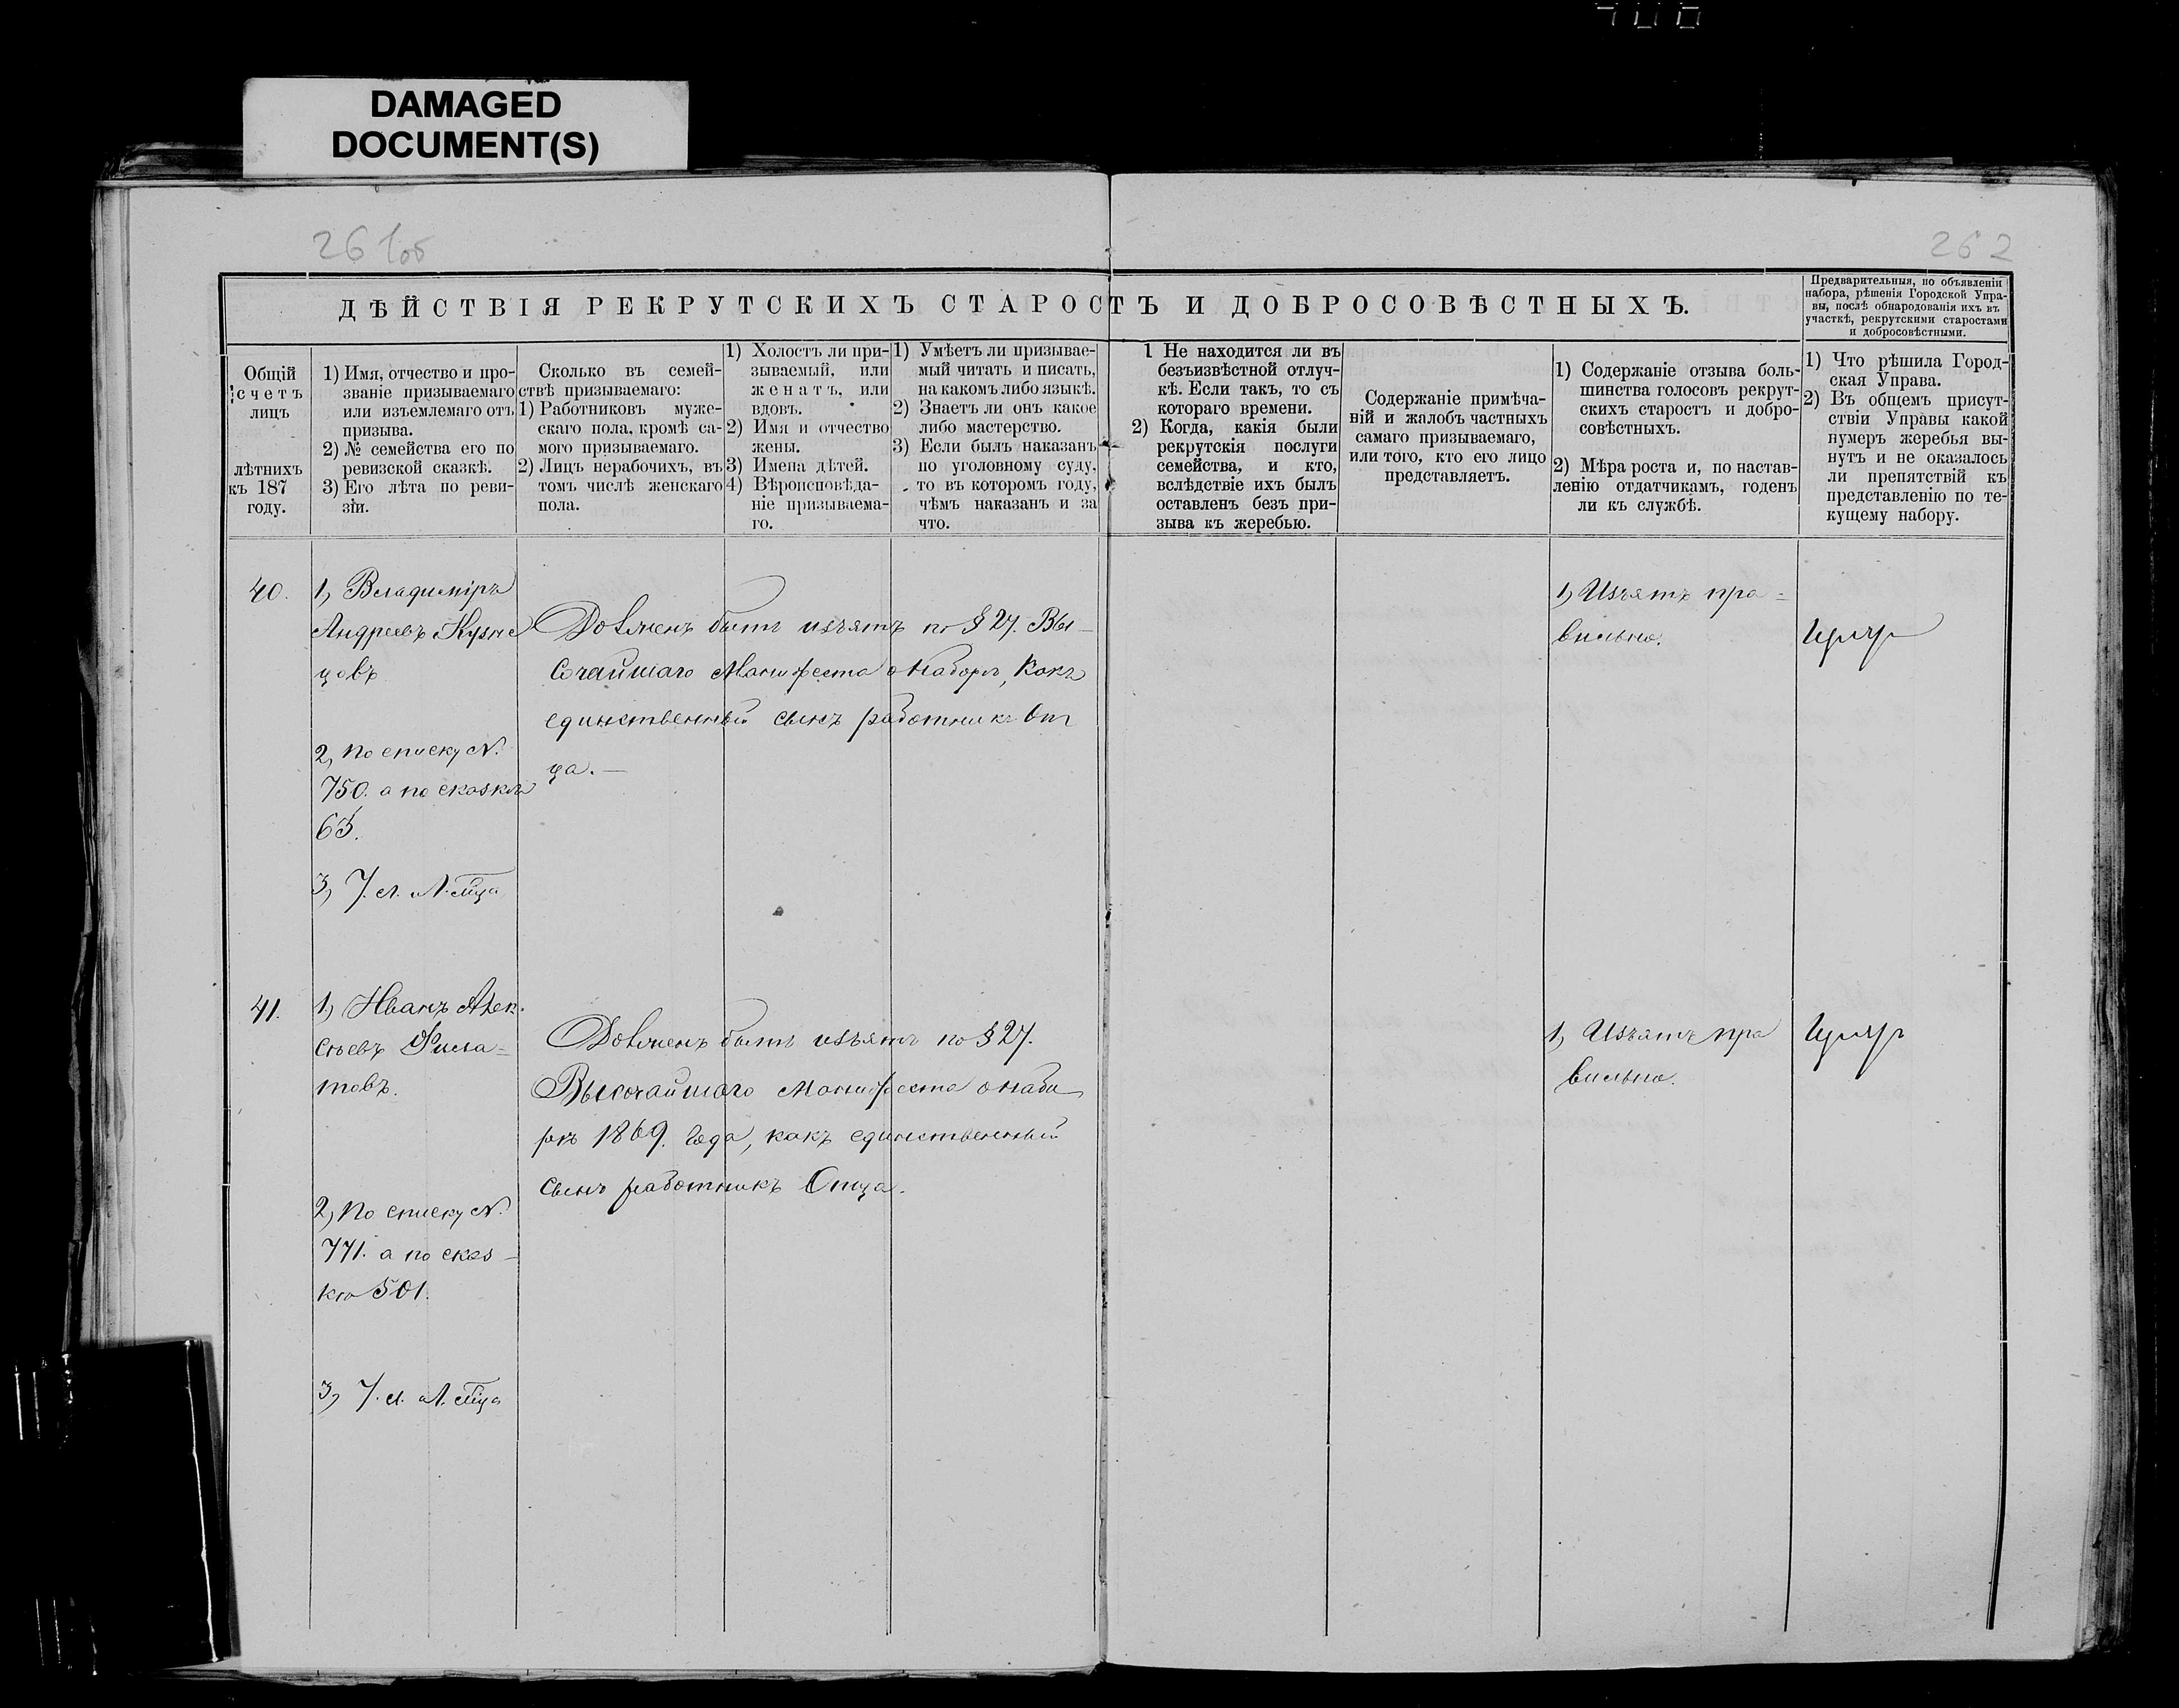 DAMAGED
DOCUMENT(S)
261 об
262
ДѢЙСТВІЯ РЕКРУТСКИХЪ СТАРОСТЪ И ДОБРОСОВѢСТНЫХЪ.
Предварительныя, по объявленіи
набора, рѣшенія Городской Упра-
вы, послѣ обнародованія ихъ въ
участкѣ, рекрутскими старостами
и добросовѣстными.
Общій
счетъ
лицъ
лѣтнихъ
къ 187
году.
1) Имя, отчество и про-
званіе призываемаго
или изъемлемаго отъ
призыва.
2) № семейства его по
ревизской сказкѣ.
3) Его лѣта по реви-
зіи.
Сколько въ семей-
ствѣ призываемаго:
1) Работниковъ муже-
скаго пола, кромѣ са-
мого призываемаго.
2) Лицъ нерабочихъ, въ
томъ числѣ женскаго
пола.
1) Холостъ ли при-
зываемый, или
женатъ, или
вдовъ.
2) Имя и отчество
жены.
3) Имена дѣтей.
4) Вѣроисповѣда-
ніе призываема-
го.
1) Умѣетъ ли призывае-
мый читать и писать,
на какомъ либо языкѣ.
2) Знаетъ ли онъ какое
либо мастерство.
3) Если былъ наказанъ
по уголовному суду,
то въ которомъ году,
чѣмъ наказанъ и за
что.
1 Не находится ли въ
безъизвѣстной отлуч-
кѣ. Если такъ, то съ
котораго времени.
2) Когда, какія были
рекрутскія послуги
семейства, и кто,
вслѣдствіе ихъ былъ
оставленъ безъ при-
зыва къ жеребью.
Содержаніе примѣча-
ній и жалобъ частныхъ
самаго призываемаго,
или того, кто его лицо
представляетъ.
1) Содержаніе отзыва боль-
шинства голосовъ рекрут-
скихъ старостъ и добро-
совѣстныхъ.
2) Мѣра роста и, по настав-
ленію отдатчикамъ, годенъ
ли къ службѣ.
1) Что рѣшила Город-
ская Управа.
2) Въ общемъ присут-
ствіи Управы какой
нумеръ жеребья вы-
нутъ и не оказалось
ли препятствій къ
представленію по те-
кущему набору.
40.
1, Владиміръ
Андреевъ Кузне
цовъ
2, По списку №
750. а по сказкѣ
65.
3, 7. л.
Долженъ быть изъятъ по § 27. Вы-
сочайшаго Манифеста о наборѣ, какъ
единственный сынъ работникъ От
ца.—
1, Изъятъ пра-
вильно.
41.
1, Иванъ Алек.
сѣевъ Фила-
товъ.
2, По списку №
771. а по сказ-
кѣ 501.
3, 7. л.
Долженъ быть изъятъ по § 27.
Высочайшаго Манифеста о набо
рѣ 1869. года, какъ единственный
сынъ работникъ Отца.
1, Изъятъ пра
вильно.